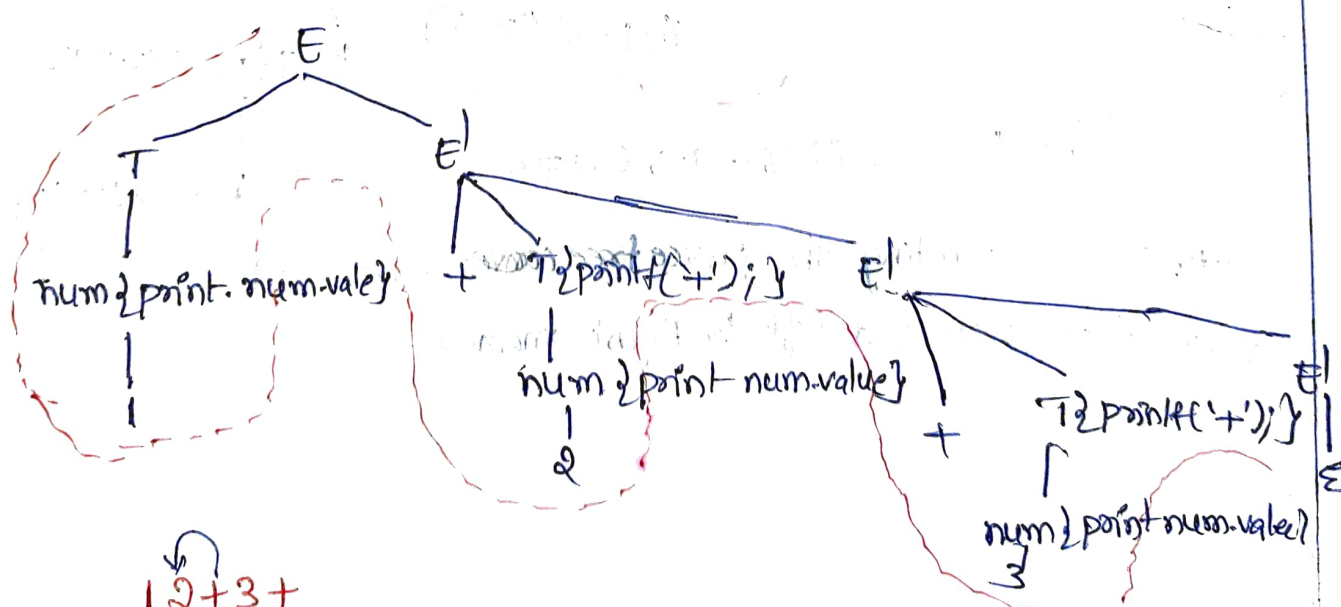 E
T E'
num{print.num.vale} + T{printf('+');} E'
num{print num.value} E'
1 + T{printf('+');}
2 ε
num{print num.value}
3
12+3+